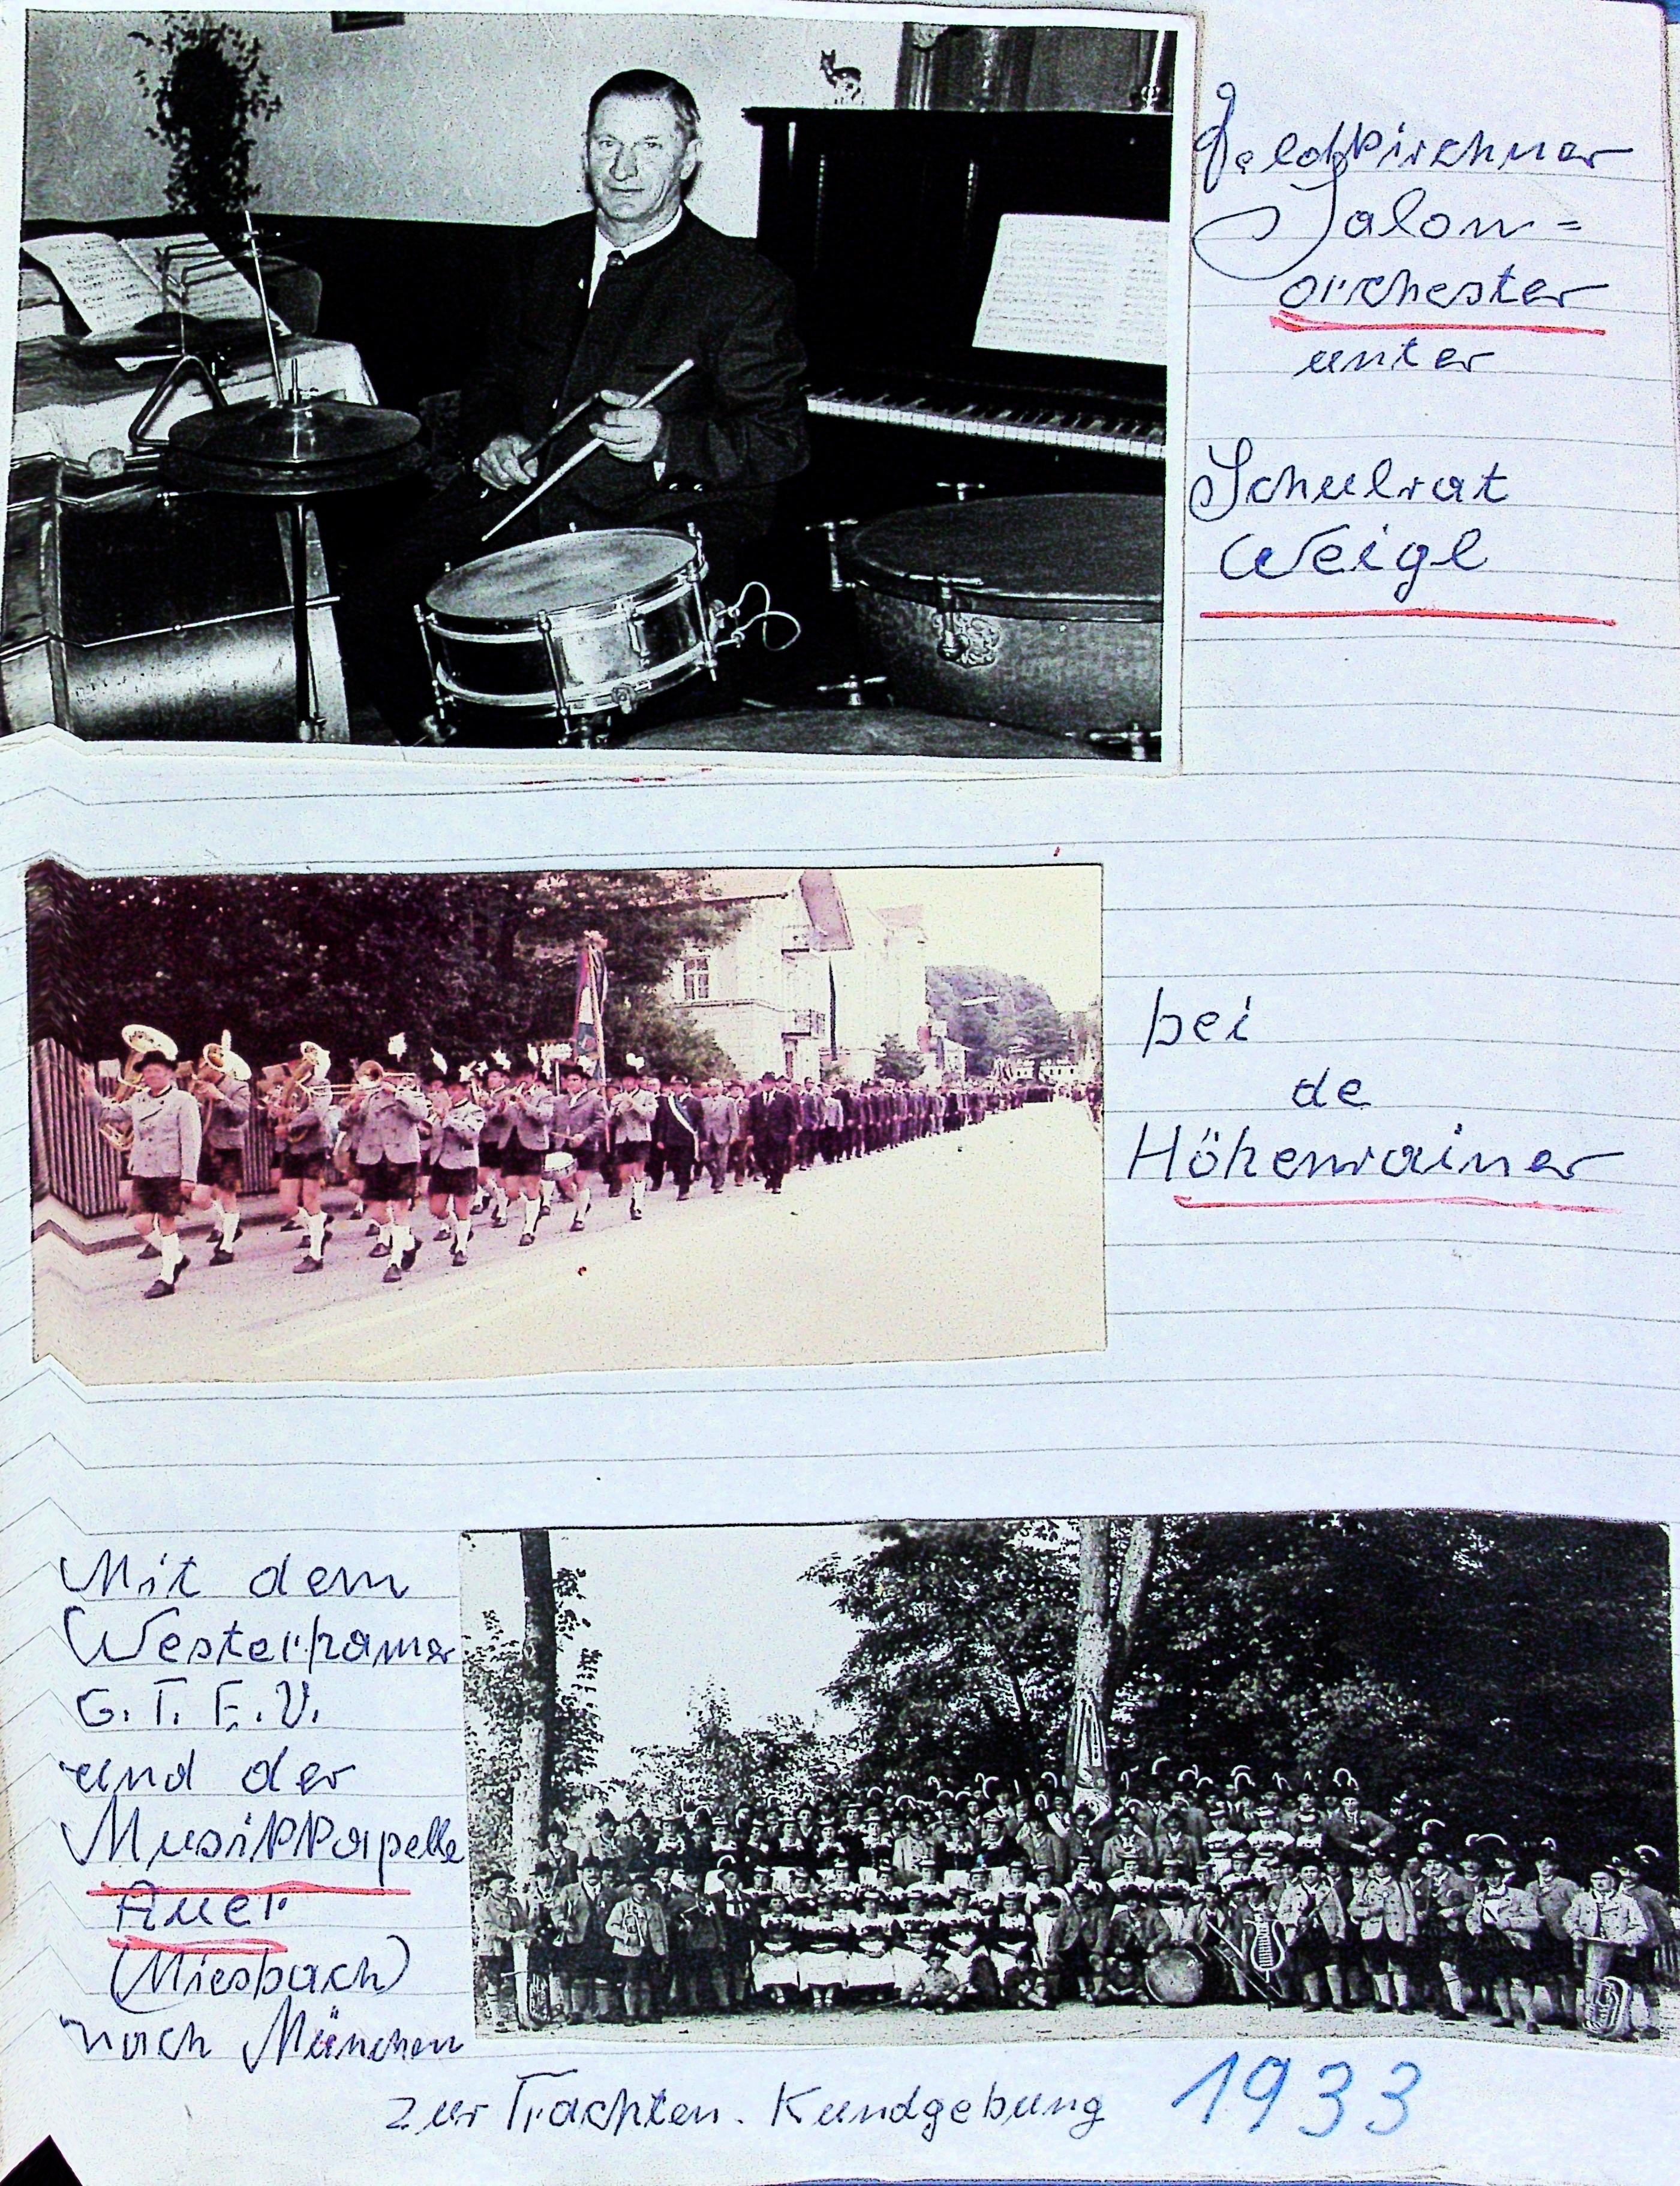 Feldkirchner
Salon=
orchester
unter
Schulrat
Weigl
bei
de
Höhenrainer
Mit dem
Westerhamer
G.T.E.V.
und der
Musikkapelle
Auer
(Miesbach)
nach München
zur Trachten-Kundgebung 1933